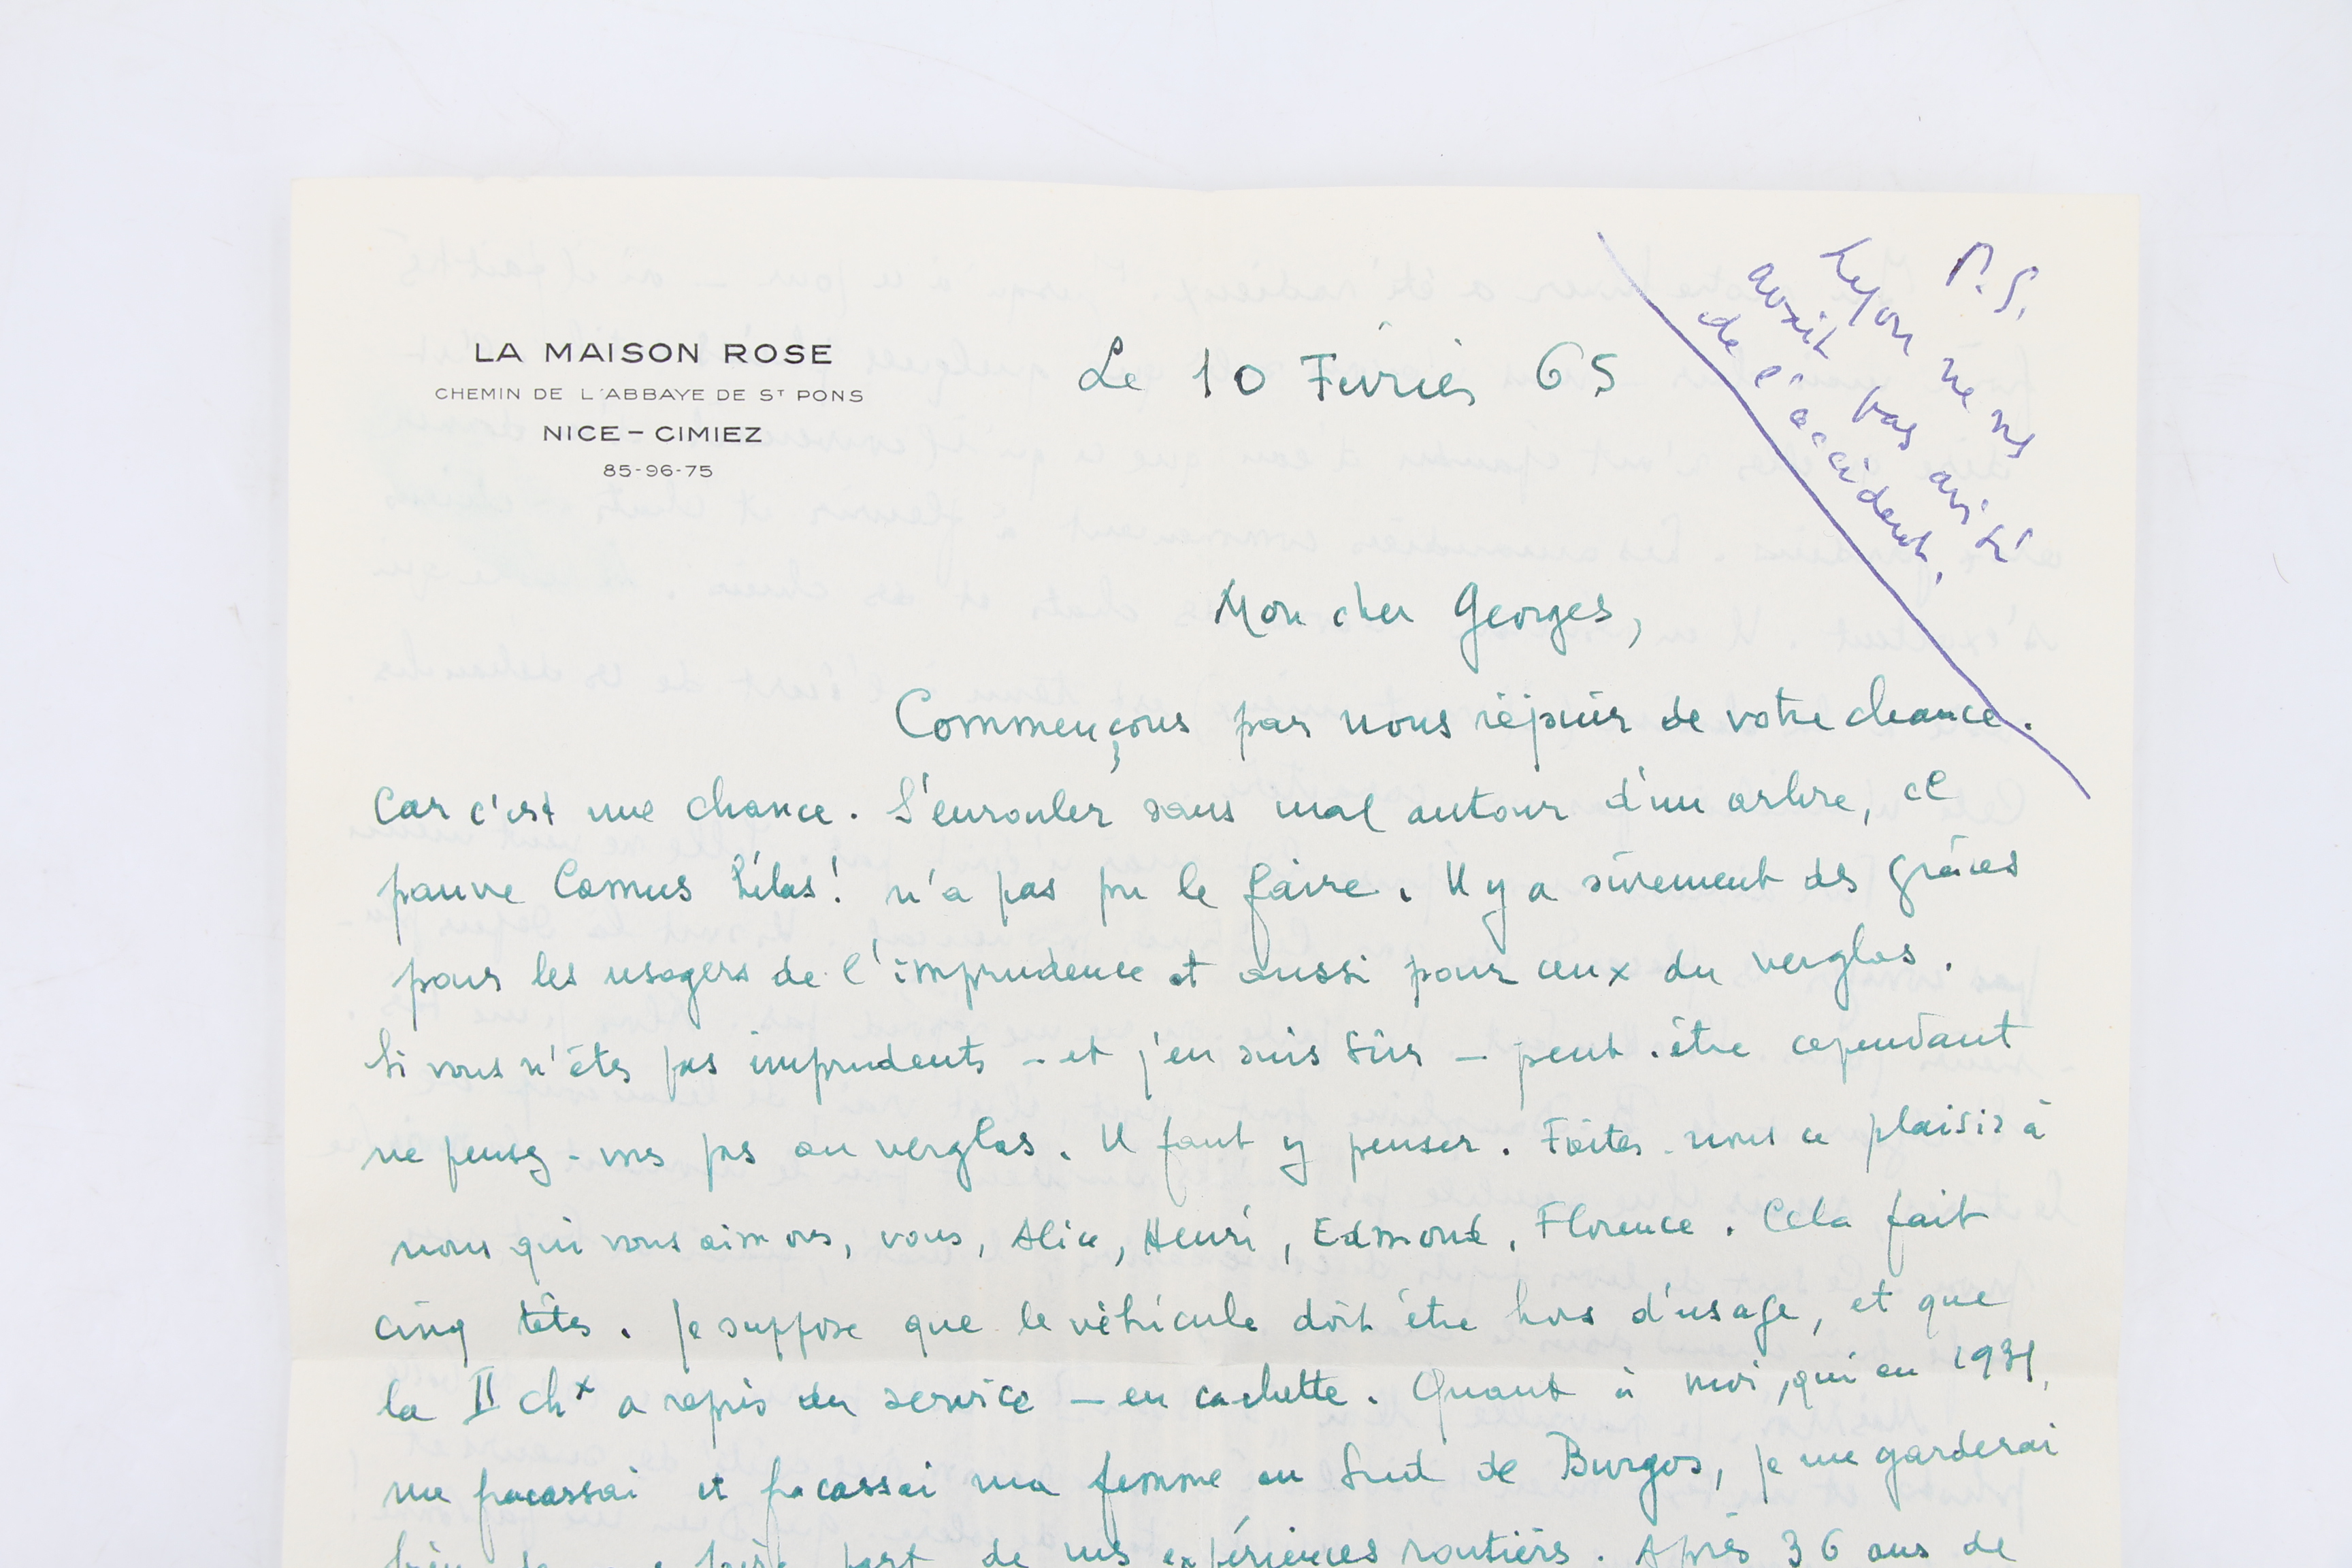 LA MAISON ROSE
CHEMIN DE L'ABBAYE DE ST PONS
NICE – CIMIEZ
85-96-75
Le 10 Février 65
P.S.
Lyon ne ns
avait pas avisé
de l'accident.
Mon cher Georges,
Commençons par nous réjouir de votre chance.
Car c'est une chance. S'enrouler sans mal autour d'un arbre, ce
pauvre Camus hélas! n'a pas pu le faire. Il y a sûrement des grâces
pour les usagers de l'imprudence et aussi pour ceux du verglas.
Si vous n'êtes pas imprudents – et j'en suis sûr – peut-être cependant
ne pensez-vous pas au verglas. Il faut y penser. Faites-nous ce plaisir à
nous qui vous aimons, vous, Alice, Henri, Edmond, Florence. Cela fait
cinq têtes. Je suppose que le véhicule doit être hors d'usage, et que
la II chx a repris du service – en cachette. Quant à moi, qui en 1931,
me fracassai et fracassai ma femme au Sud de Burgos, je me garderai
bien de faire part de mes expériences routières. Après 36 ans de